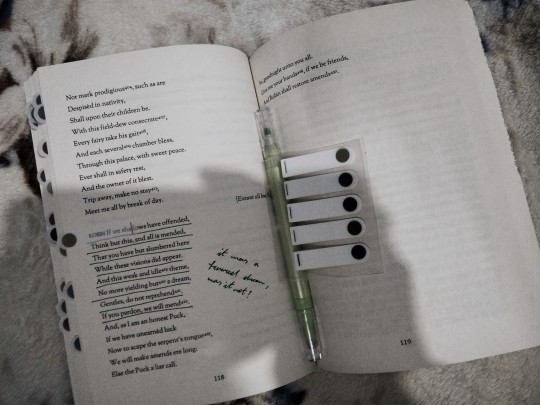 Nor mark prodigious, such as are
Despisèd in nativity,
Shall upon their children be.
With this field-dew consecrate,
Every fairy take his gait,
And each several chamber bless,
Through this palace, with sweet peace.
Ever shall in safety rest,
And the owner of it blest.
Trip away, make no stay,
Meet me all by break of day.
[Exeunt all bu
If we shadows have offended,
Think but this, and all is mended,
That you have but slumbered here
While these visions did appear.
And this weak and idle theme,
No more yielding but a dream,
Gentles, do not reprehend.
If you pardon, we will mend.
And, as I am an honest Puck,
If we have unearnèd luck
Now to scape the serpent's tongue,
We will make amends ere long.
Else the Puck a liar call.
118
it was a
fevered dream,
was it not!
So goodnight unto you all.
Give me your hands, if we be friends,
And Robin shall restore amends.
119